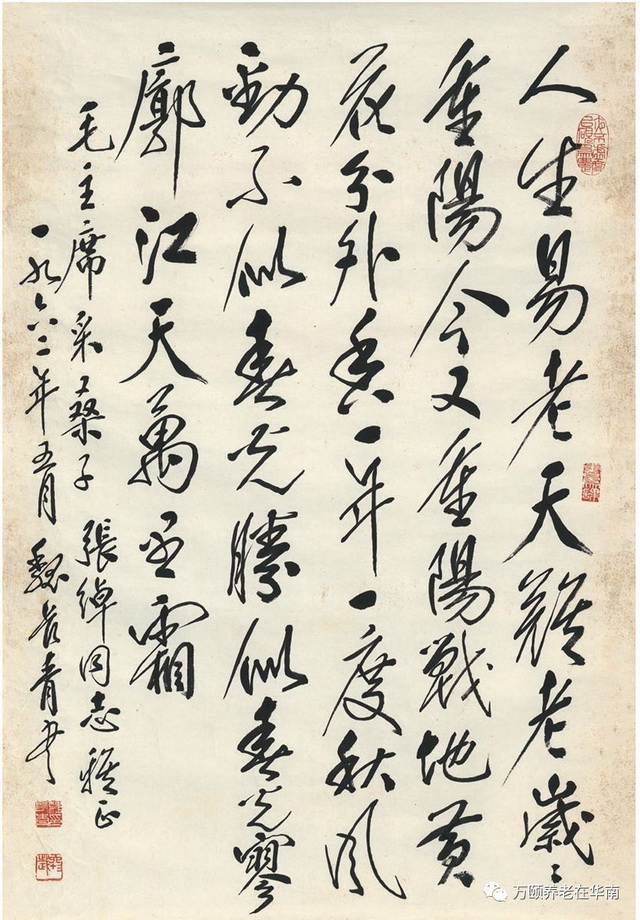 人生易老天難老歲〻
重陽今又重陽戰地黄
花分外香一年一度秋風
勁不似春光勝似春光寥
廓江天萬里霜
毛主席采桑子 張綽同志雅正
一九六二年五月 魏長青书
万颐养老在华南